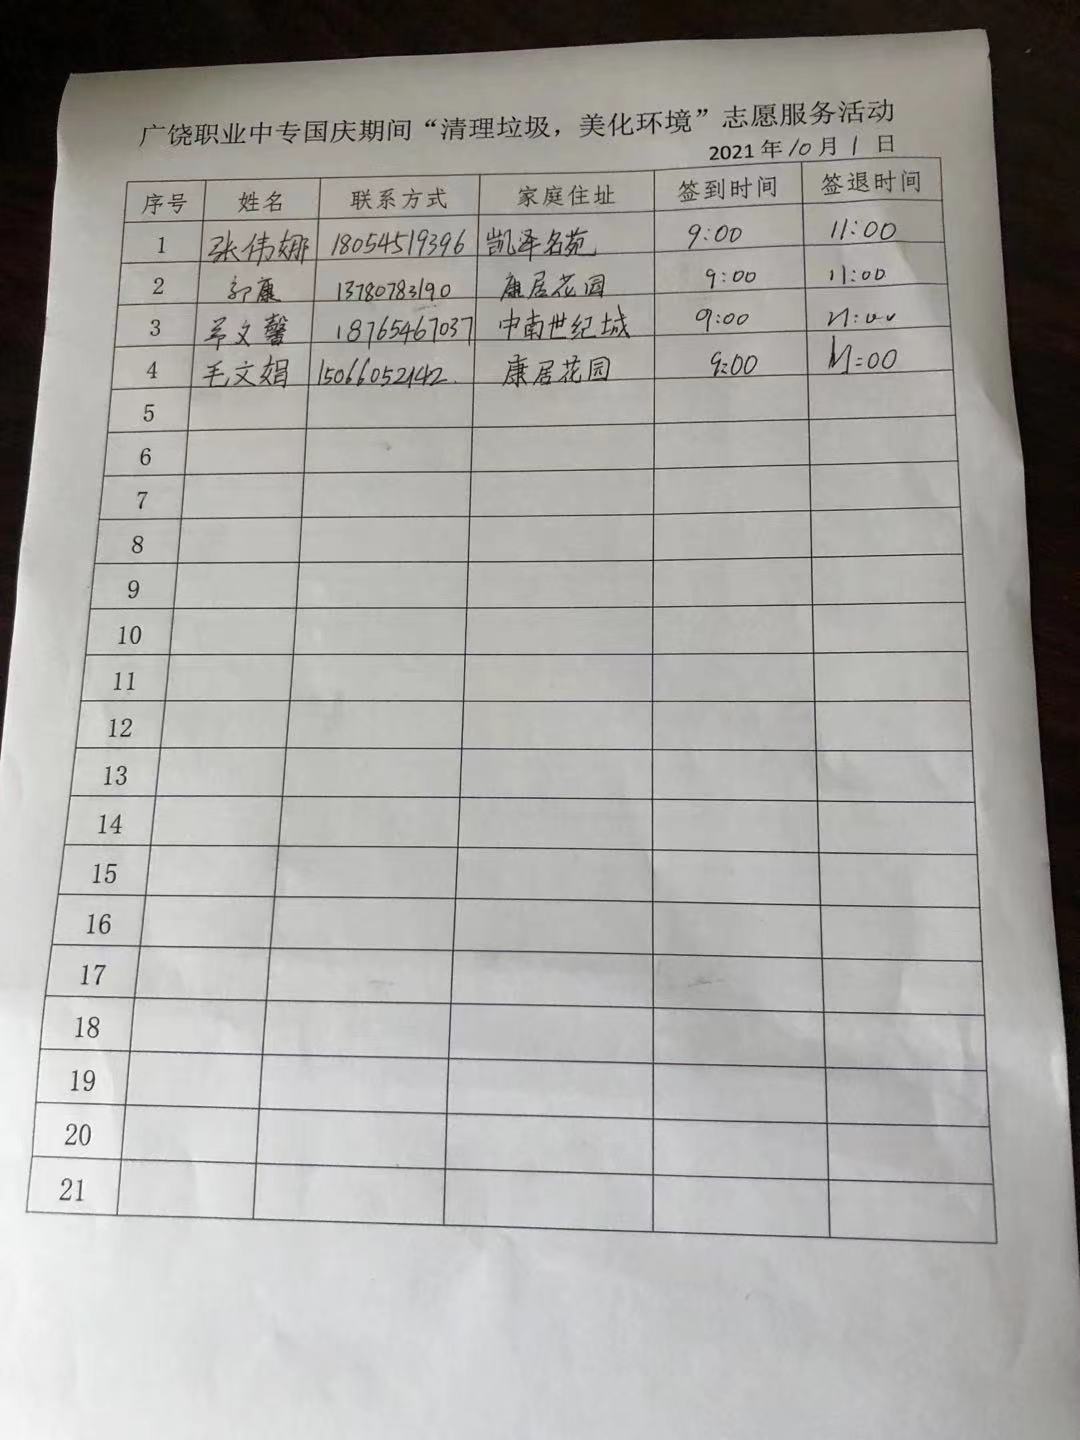 广饶职业中专国庆期间“清理垃圾，美化环境”志愿服务活动
2021年10月1日
序号 姓名 联系方式 家庭住址 签到时间 签退时间
1 张伟娜 18054519396 凯泽名苑 9:00 11:00
2 郭康 13780783190 康居花园 9:00 11:00
3 文馨 18765467037 中南世纪城 9:00 11:00
4 毛文娟 15066052142. 康居花园 9:00 11:00
5
6
7
8
9
10
11
12
13
14
15
16
17
18
19
20
21